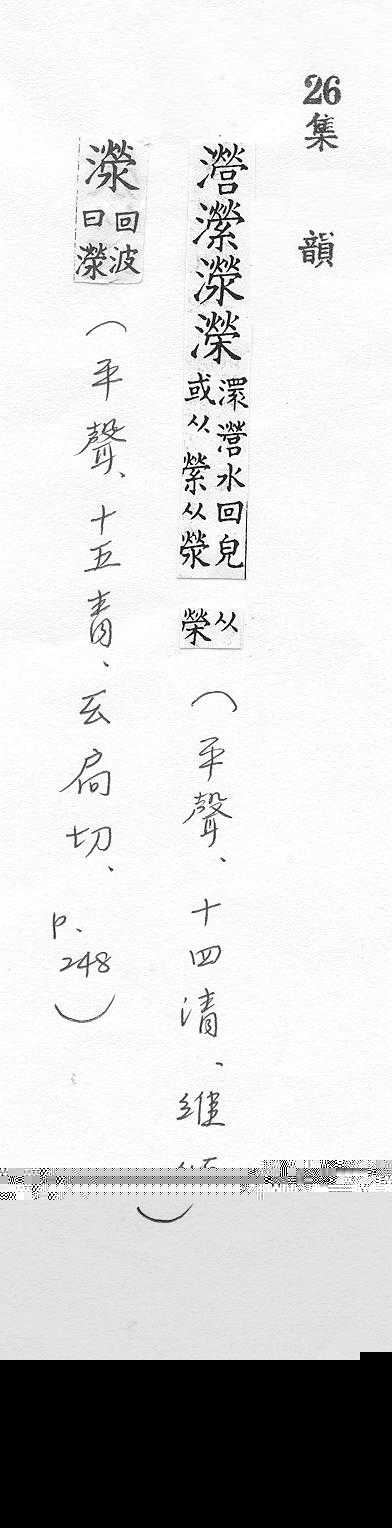 26集 韻
瀯瀠濴濚澴瀯水回皃或从縈从滎从榮（平聲、十四清、維
濴回波曰濴（平聲、十五青、玄扃切、p.248）